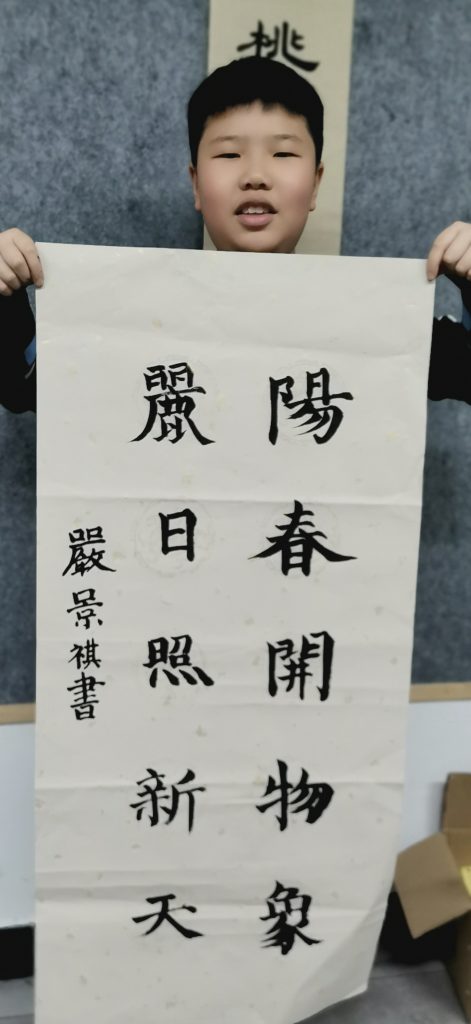 陽春開物象
麗日照新天
嚴景祺書
桃